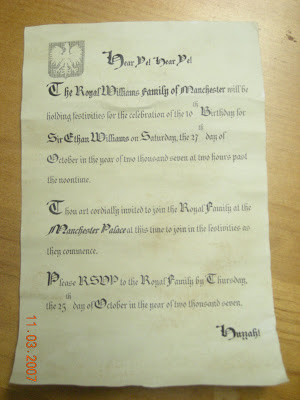 Hear Ye! Hear Ye!
The Royal Williams Family of Manchester will be
holding festivities for the celebration of the 10th Birthday for
Sir Ethan Williams on Saturday, the 27th day of
October in the year of two thousand seven at two hours past
the noontime.
Thou art cordially invited to join the Royal Family at the
Manchester Palace at this time to join in the festivities as
they commence.
Please RSVP to the Royal Family by Thursday,
the 25th day of October in the year of two thousand seven.
Huzzah!
11.03.2007